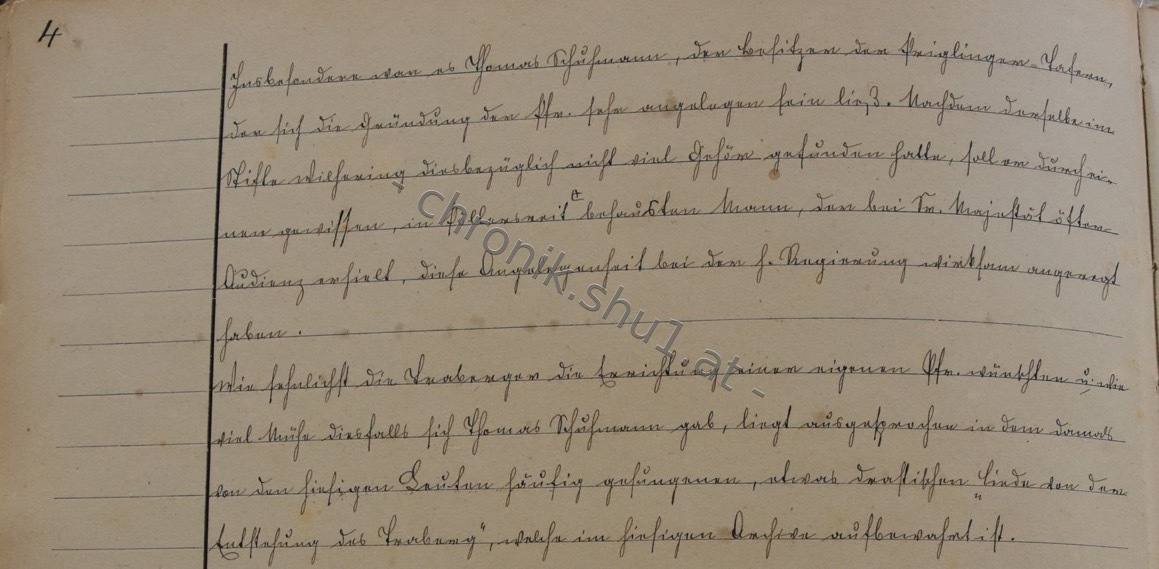 4
Insbesondere war es Thomas Schuhmann, der Besitzer der Priglinger-Tafern,
der sich die Gründung der Pfr. sehr angelegen sein ließ. Nachdem derselbe im
Stifte Wilhering diesbezüglich nicht viel Gehör gefunden hatte, soll er durch ei-
nen gewissen, in behausten Mann, der bei Sr. Majestät öfter
Audienz erhielt, diese Angelegenheit bei der h. Regierung wirksam angeregt
haben.
Wie sehnlichst die Traberger die Errichtung einer eigenen Pfr. wünschten u. wie
viel Mühe diesfalls sich Thomas Schuhmann gab, liegt ausgesprochen in dem damals
von den hiesigen Leuten häufig gesungenen, etwas drastischen „Liede von der
Entstehung des Traberg", welche im hiesigen Archive aufbewahrt ist.
- chronik.shu1.at -